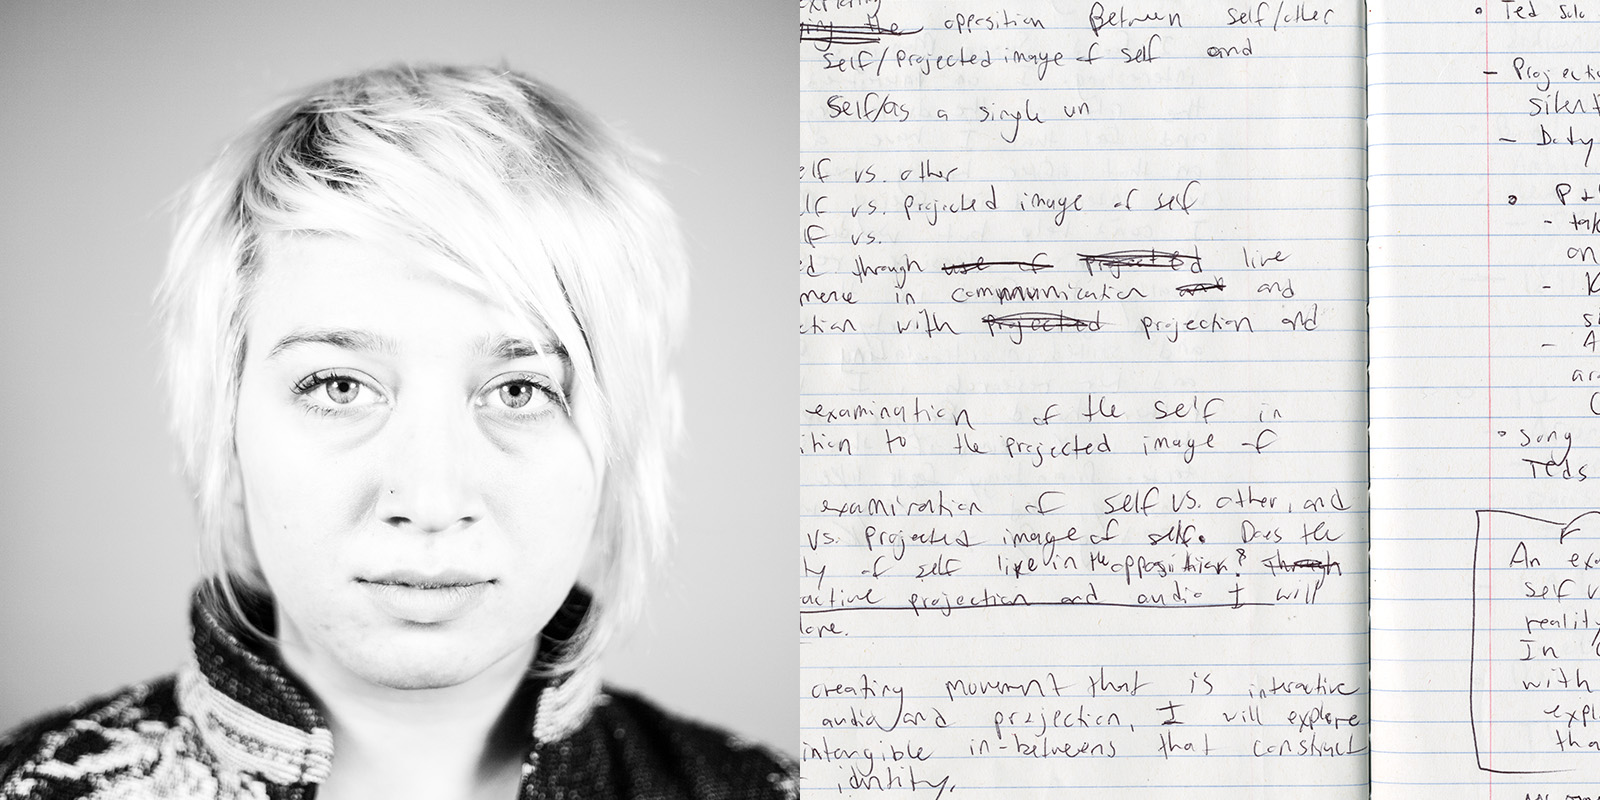 exploring
the opposition Between self/other
self/projected image of self and
self/as a single un
elf vs. other
lf vs. projected image of self
lf vs.
ed through use of projected live
mence in communication and and
ction with projected projection and
examination of the self in
ition to the projected image of
examination of self vs. other, and
vs. projected image of self. Does the
ty of self live in the opposition? Through
active projection and audio I will
lore.
creating movement that is interactive
audio and projection, I will explore
intangible in-betweens that construct
identity.
Ted Solo
- Projectio
silent
- Duty
- tak
on
- K
si
- A
ar
C
Song
Teds
An exa
self v
reality
In
with
expl
tha